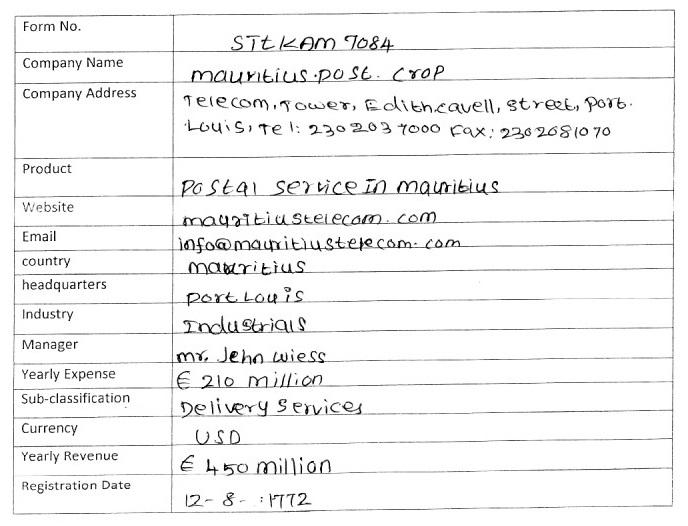 Form No. STtKAM 7084
Company Name mauritius.post. crop
Company Address Telecom, Tower, Edith.cavell, street, port.
Louis, Tel: 230 203 7000 Fax: 230 2081070
Product postal service In mauritius
Website mauritiustelecom.com
Email info@mauritiustelecom.com
country mauritius
headquarters port Louis
Industry Industrials
Manager mr. Jehn wiess
Yearly Expense € 210 million
Sub-classification Delivery services
Currency USD
Yearly Revenue € 450 million
Registration Date 12- 8- :1772